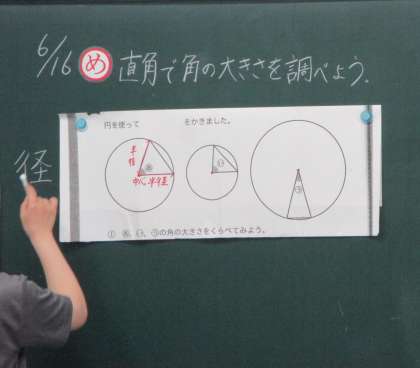 6/16 め 直角で角の大きさを調べよう.
径
円を使って をかきました。
半径
中心 半径
あ
い
う
① あ、い、うの角の大きさをくらべてみよう。